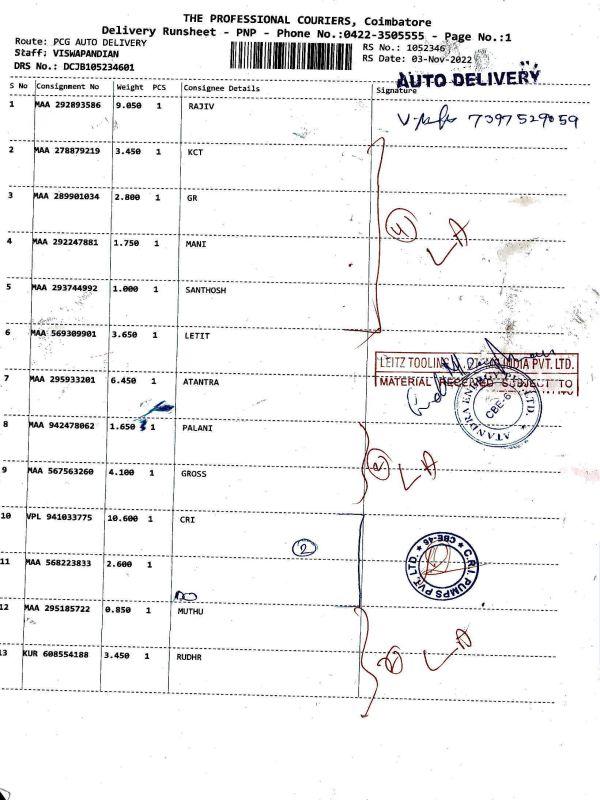 THE PROFESSIONAL COURIERS, Coimbatore
Delivery Runsheet - PNP - Phone No.:0422-3505555 - Page No.:1
Route: PCG AUTO DELIVERY
RS No.: 1052346
Staff: VISWAPANDIAN
RS Date: 03-Nov-2022
DRS No.: DCJB105234601
AUTO DELIVERY
S No Consignment No Weight PCS Consignee Details Signature
1 MAA 292893586 9.050 1 RAJIV
7397529059
2 MAA 278879219 3.450 1 KCT
3 MAA 289901034 2.800 1 GR
4 LA
4 MAA 292247881 1.750 1 MANI
5 MAA 293744992 1.000 1 SANTHOSH
6 MAA 569309901 3.650 1 LETIT
LEITZ TOOLING INDIA PVT. LTD.
MATERIAL RECEIVED SUBJECT TO
7 MAA 295933201 6.450 1 ATANTRA
ATANDRA LTD. CBE-6
8 MAA 942478062 1.650 1 PALANI
2 LA
9 MAA 567563260 4.100 1 GROSS
10 VPL 941033775 10.600 1 CRI
2
C.R.I. PUMPS PVT. LTD. CBE-46
11 MAA 568223833 2.600 1
DO
12 MAA 295185722 0.850 1 MUTHU
2 LA
13 KUR 608554188 3.450 1 RUDHR